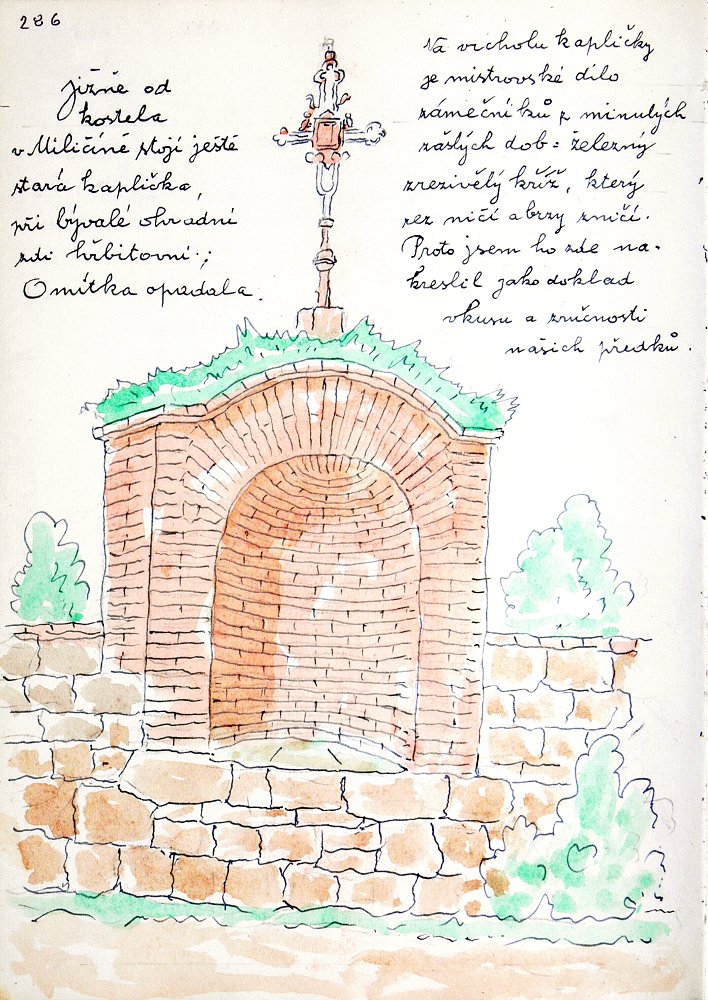 286
Jižně od
kostela
v Miličíně stojí ještě
stará kaplička,
při bývalé ohradní
zdi hřbitovní.;
Omítka opadala.
Na vrcholu kapličky
je mistrovské dílo
zámečníků z minulých
zašlých dob: železný
zrezivělý kříž, který
rez ničí a brzy zničí.
Proto jsem ho zde na-
kreslil jako doklad
vkusu a zručnosti
našich předků.